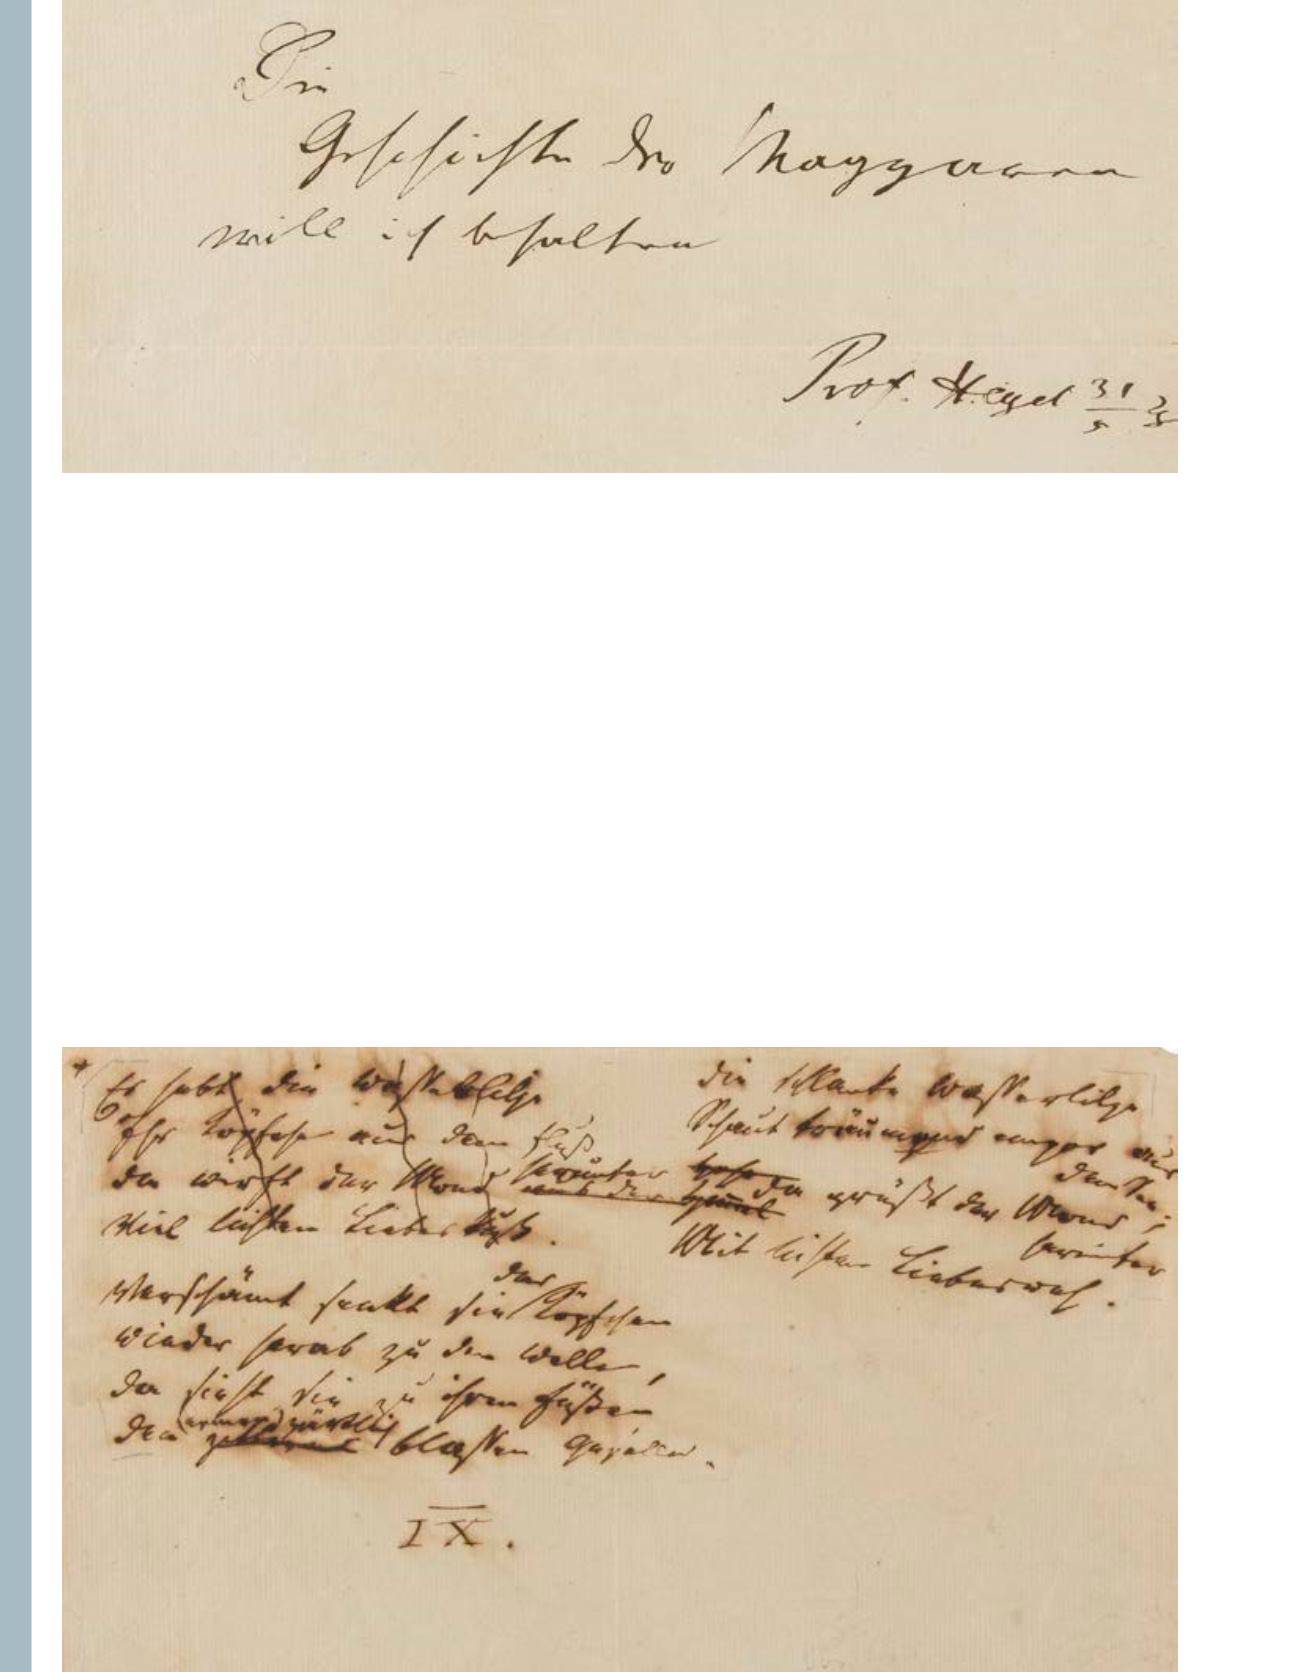 Die
Geschichte der Magyaren
will ich behalten
Prof. Hegel 31/5 25
Es hebt die Wasserlilje
Ihr Köpfchen aus dem Fluß
da wirft der Mond herunter aus der
Viel lichten Liebeskuß.
Verschämt senkt sie das Köpfchen
wieder herab zu den Wellen,
da sieht sie zu ihren Füßen
den armen blassen Gesellen.
IX.
die schlanke Wasserlilje
Schaut träumend empor aus
dem See;
da grüßt der Mond
herunter
Mit lichtem Liebesweh.